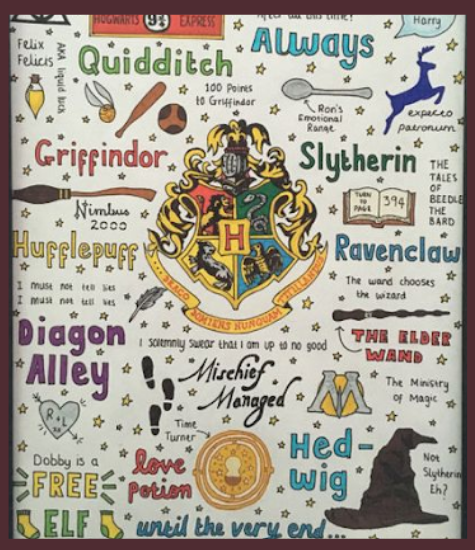 HOGWARTS 9¾ EXPRESS
After all this time?
Always
Harry
Felix
Felicis
AKA liquid luck
Quidditch
100 Points
to Griffindor
Ron's
Emotional
Range
expecto
patronum
Griffindor
Slytherin
THE
TALES
OF
BEEDLE
THE
BARD
TURN
TO
PAGE
394
Nimbus
2000
H
DRACO NUNQUAM
Hufflepuff
Ravenclaw
I must not tell lies
I must not tell lies
The wand chooses
the wizard
THE ELDER
WAND
Diagon
Alley
I solemnly swear that I am up to no good
Mischief
Managed
M
The Ministry
of Magic
R+L
Time
Turner
Dobby is a
FREE
ELF
love
potion
Hed-
wig
Not
Slytherin
Eh?
until the very end...